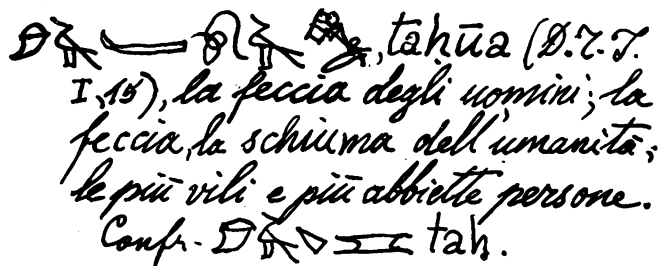 , tahūa (D.T.T.
I, 15), la feccia degli uomini; la
feccia, la schiuma dell'umanità;
le più vili e più abbiette persone.
Confr. tah.